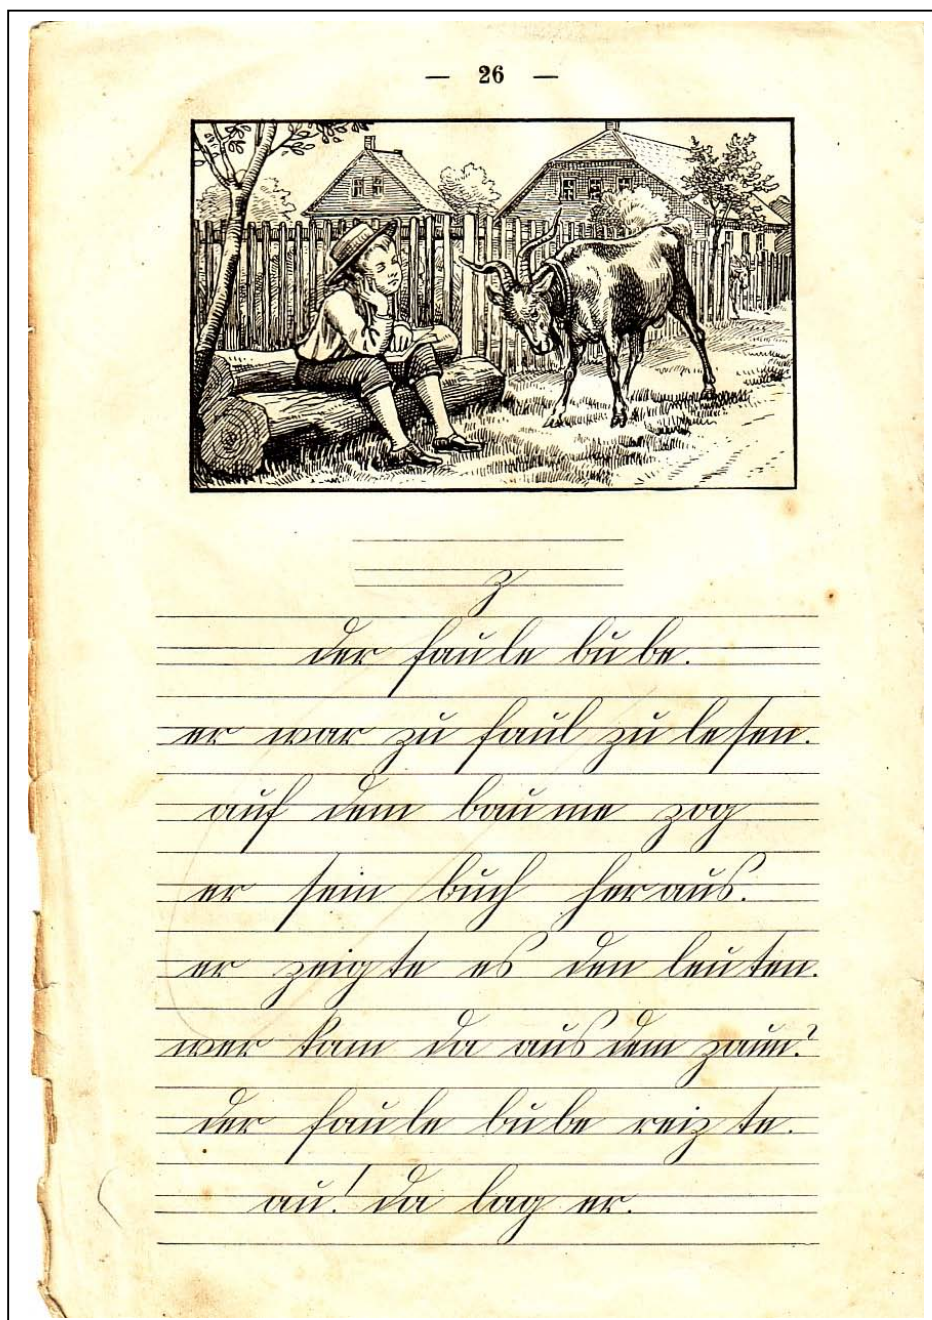 — 26 —
z
der faule bube.
er war zu faul zu lesen.
auf dem baume zog
er sein buch heraus.
er zeigte es den leuten.
wer kam da aus dem zaun?
der faule bube reizte.
au! da lag er.